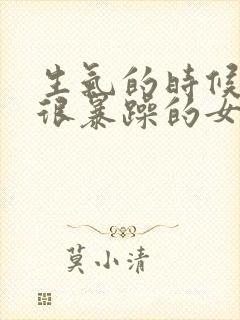 生氣的時候
很暴躁的女
莫小清